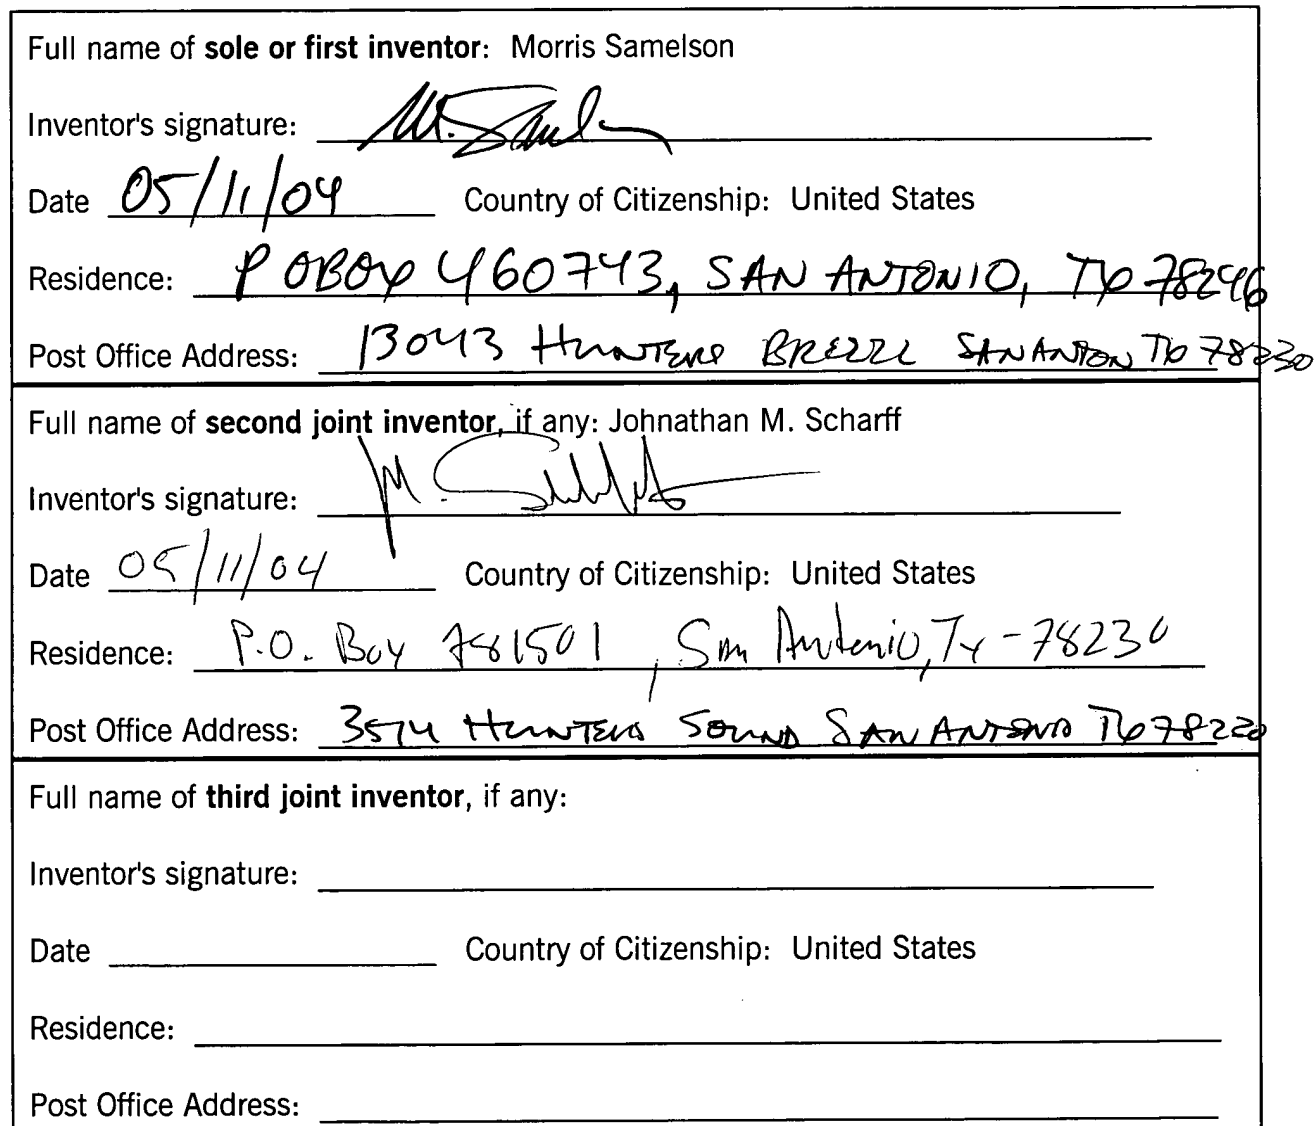 Full name of sole or first inventor: Morris Samelson
Inventor's signature:
Date 05/11/04 Country of Citizenship: United States
Residence: P O BOX 460743, SAN ANTONIO, TX 78246
Post Office Address: 13043 HUNTERS BREEZE SAN ANTON TX 78230
Full name of second joint inventor, if any: Johnathan M. Scharff
Inventor's signature:
Date 05/11/04 Country of Citizenship: United States
Residence: P.O. Box 781501, San Antonio, Tx - 78230
Post Office Address: HUNTERS SOUND SAN ANTONIO TX
Full name of third joint inventor, if any:
Inventor's signature:
Date Country of Citizenship: United States
Residence:
Post Office Address: